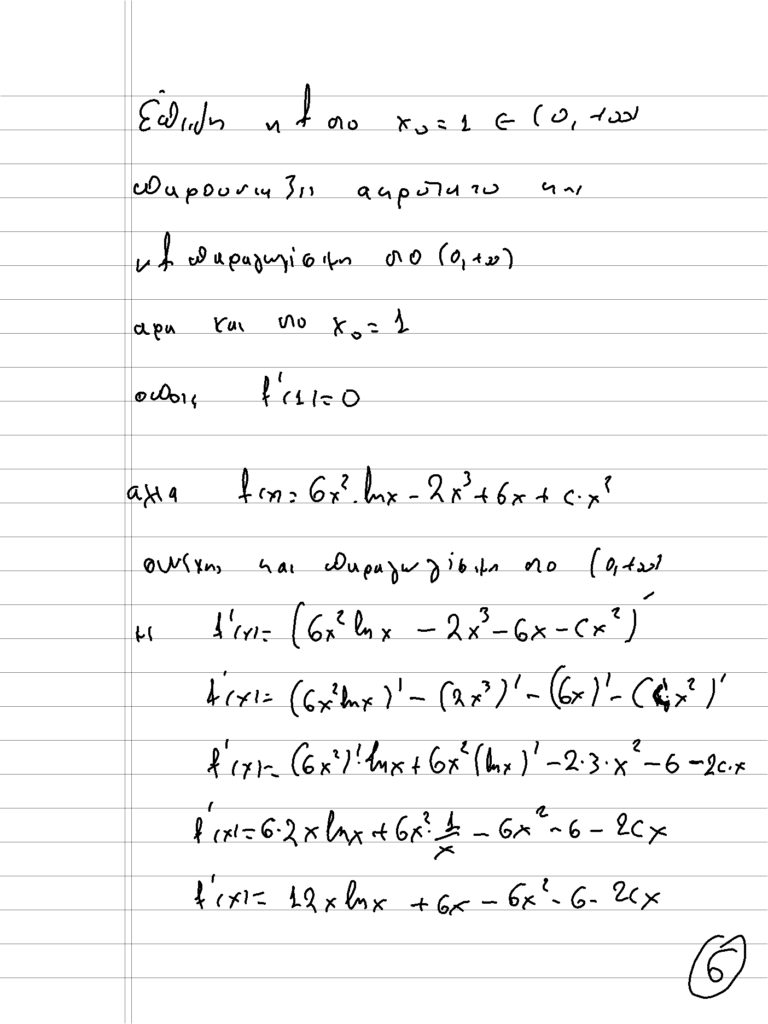 Επειδή η f στο x₀ = 1 ∈ (0, +∞)
παρουσιάζει ακρότατο και
η f παραγωγίσιμη στο (0, +∞)
άρα και στο x₀ = 1
οπότε f'(1) = 0
αλλά f(x) = 6x². lnx - 2x³ + 6x + c·x²
συνεχής και παραγωγίσιμη στο (0, +∞)
με f'(x) = (6x² ln x - 2x³ - 6x - cx²)'
f'(x) = (6x² lnx)' - (2x³)' - (6x)' - (c·x²)'
f'(x) = (6x²)'·lnx + 6x² (lnx)' - 2·3·x² - 6 - 2c·x
f'(x) = 6·2x lnx + 6x²·1/x - 6x² - 6 - 2cx
f'(x) = 12x lnx + 6x - 6x² - 6 - 2cx
6